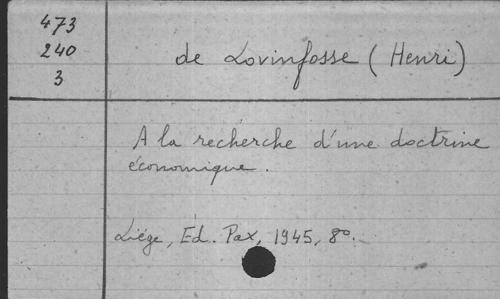 473
240
3
de Lovinfosse (Henri)
A la recherche d'une doctrine
économique.
Liége, Ed. Pax, 1945, 8º.